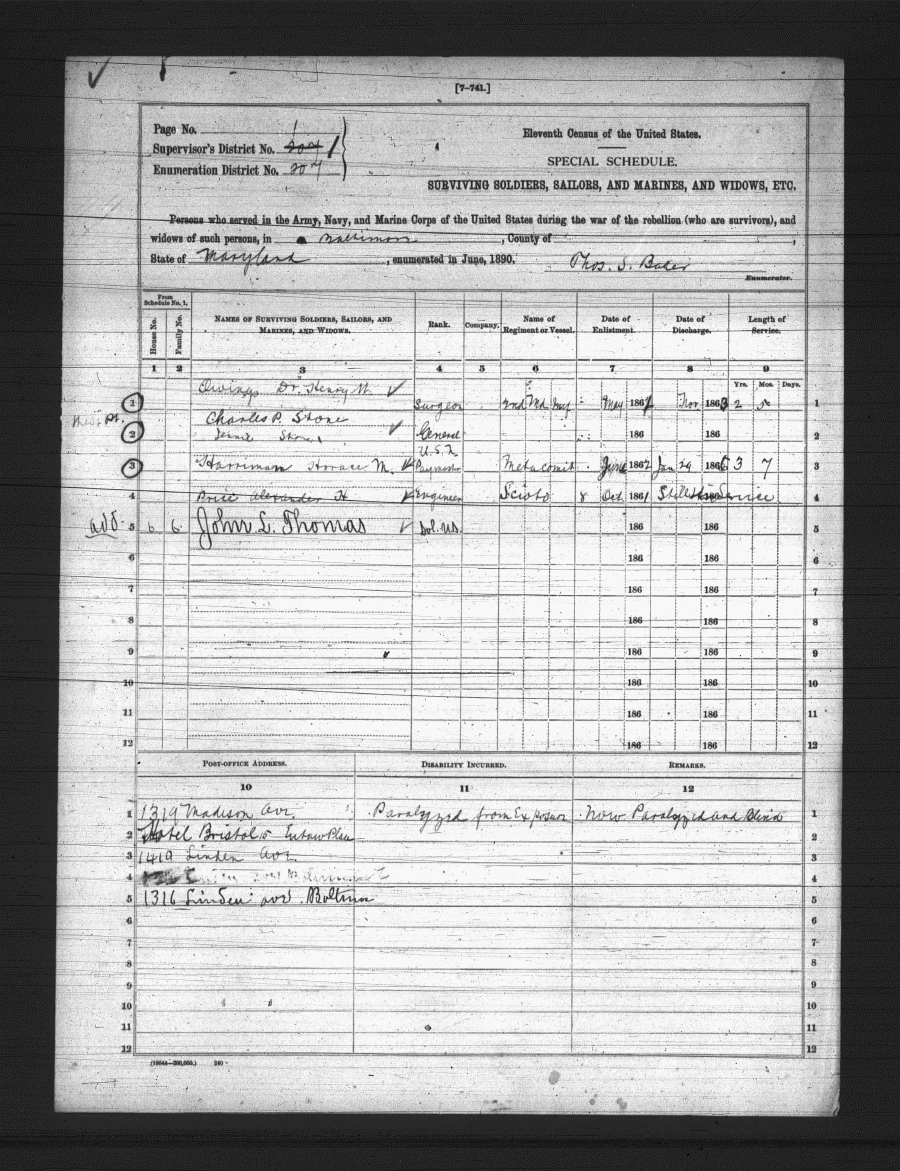 [7-741.]
Page No. 1
Supervisor's District No. 204 1
Enumeration District No. 207
Eleventh Census of the United States.
SPECIAL SCHEDULE.
SURVIVING SOLDIERS, SAILORS, AND MARINES, AND WIDOWS, ETC.
Persons who served in the Army, Navy, and Marine Corps of the United States during the war of the rebellion (who are survivors), and
widows of such persons, in Baltimore, County of ,
State of Maryland, enumerated in June, 1890. Thos. S.
Enumerator.
From Schedule No. 1.
House No. Family No. NAMES OF SURVIVING SOLDIERS, SAILORS, AND MARINES, AND WIDOWS. Rank. Company. Name of Regiment or Vessel. Date of Enlistment. Date of Discharge. Length of Service.
1 2 3 4 5 6 7 8 9
Yrs. Mos. Days.
1 Owings Dr. Henry W. Surgeon 2nd Md Inf May 1861 Nov 1863 2 5 1
2 Charles P. Stone General 186 186 2
Jennie Stone U.S.A
3 Harriman Horace M. Paymaster Metacomit June 1862 Jan 29 1866 3 7 3
4 Price Alexander H Engineer Scioto 8 Oct 1861 Still in Service 4
add 5 6 6 John L. Thomas Sol. US. 186 186 5
6 186 186 6
7 186 186 7
8 186 186 8
9 186 186 9
10 186 186 10
11 186 186 11
12 186 186 12
POST-OFFICE ADDRESS. DISABILITY INCURRED. REMARKS.
10 11 12
1 1319 Madison Ave. Paralyzed from Exposure now Paralyzed and Blind 1
2 Hotel Bristol Eutaw Place 2
3 1419 Linden Ave. 3
4 4
5 1316 Linden ave. Baltimo 5
6 6
7 7
8 8
9 9
10 10
11 11
12 12